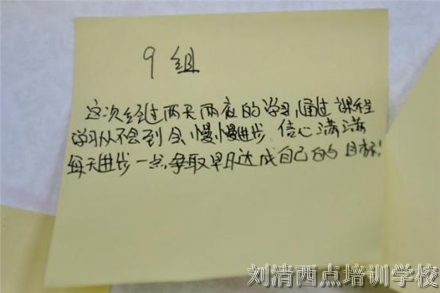 9组
这次经过两天两夜的学习,通过课程
学习从不会到会,慢慢进步 信心满满
每天进步一点,争取早日达成自己的目标!
刘清西点培训学校